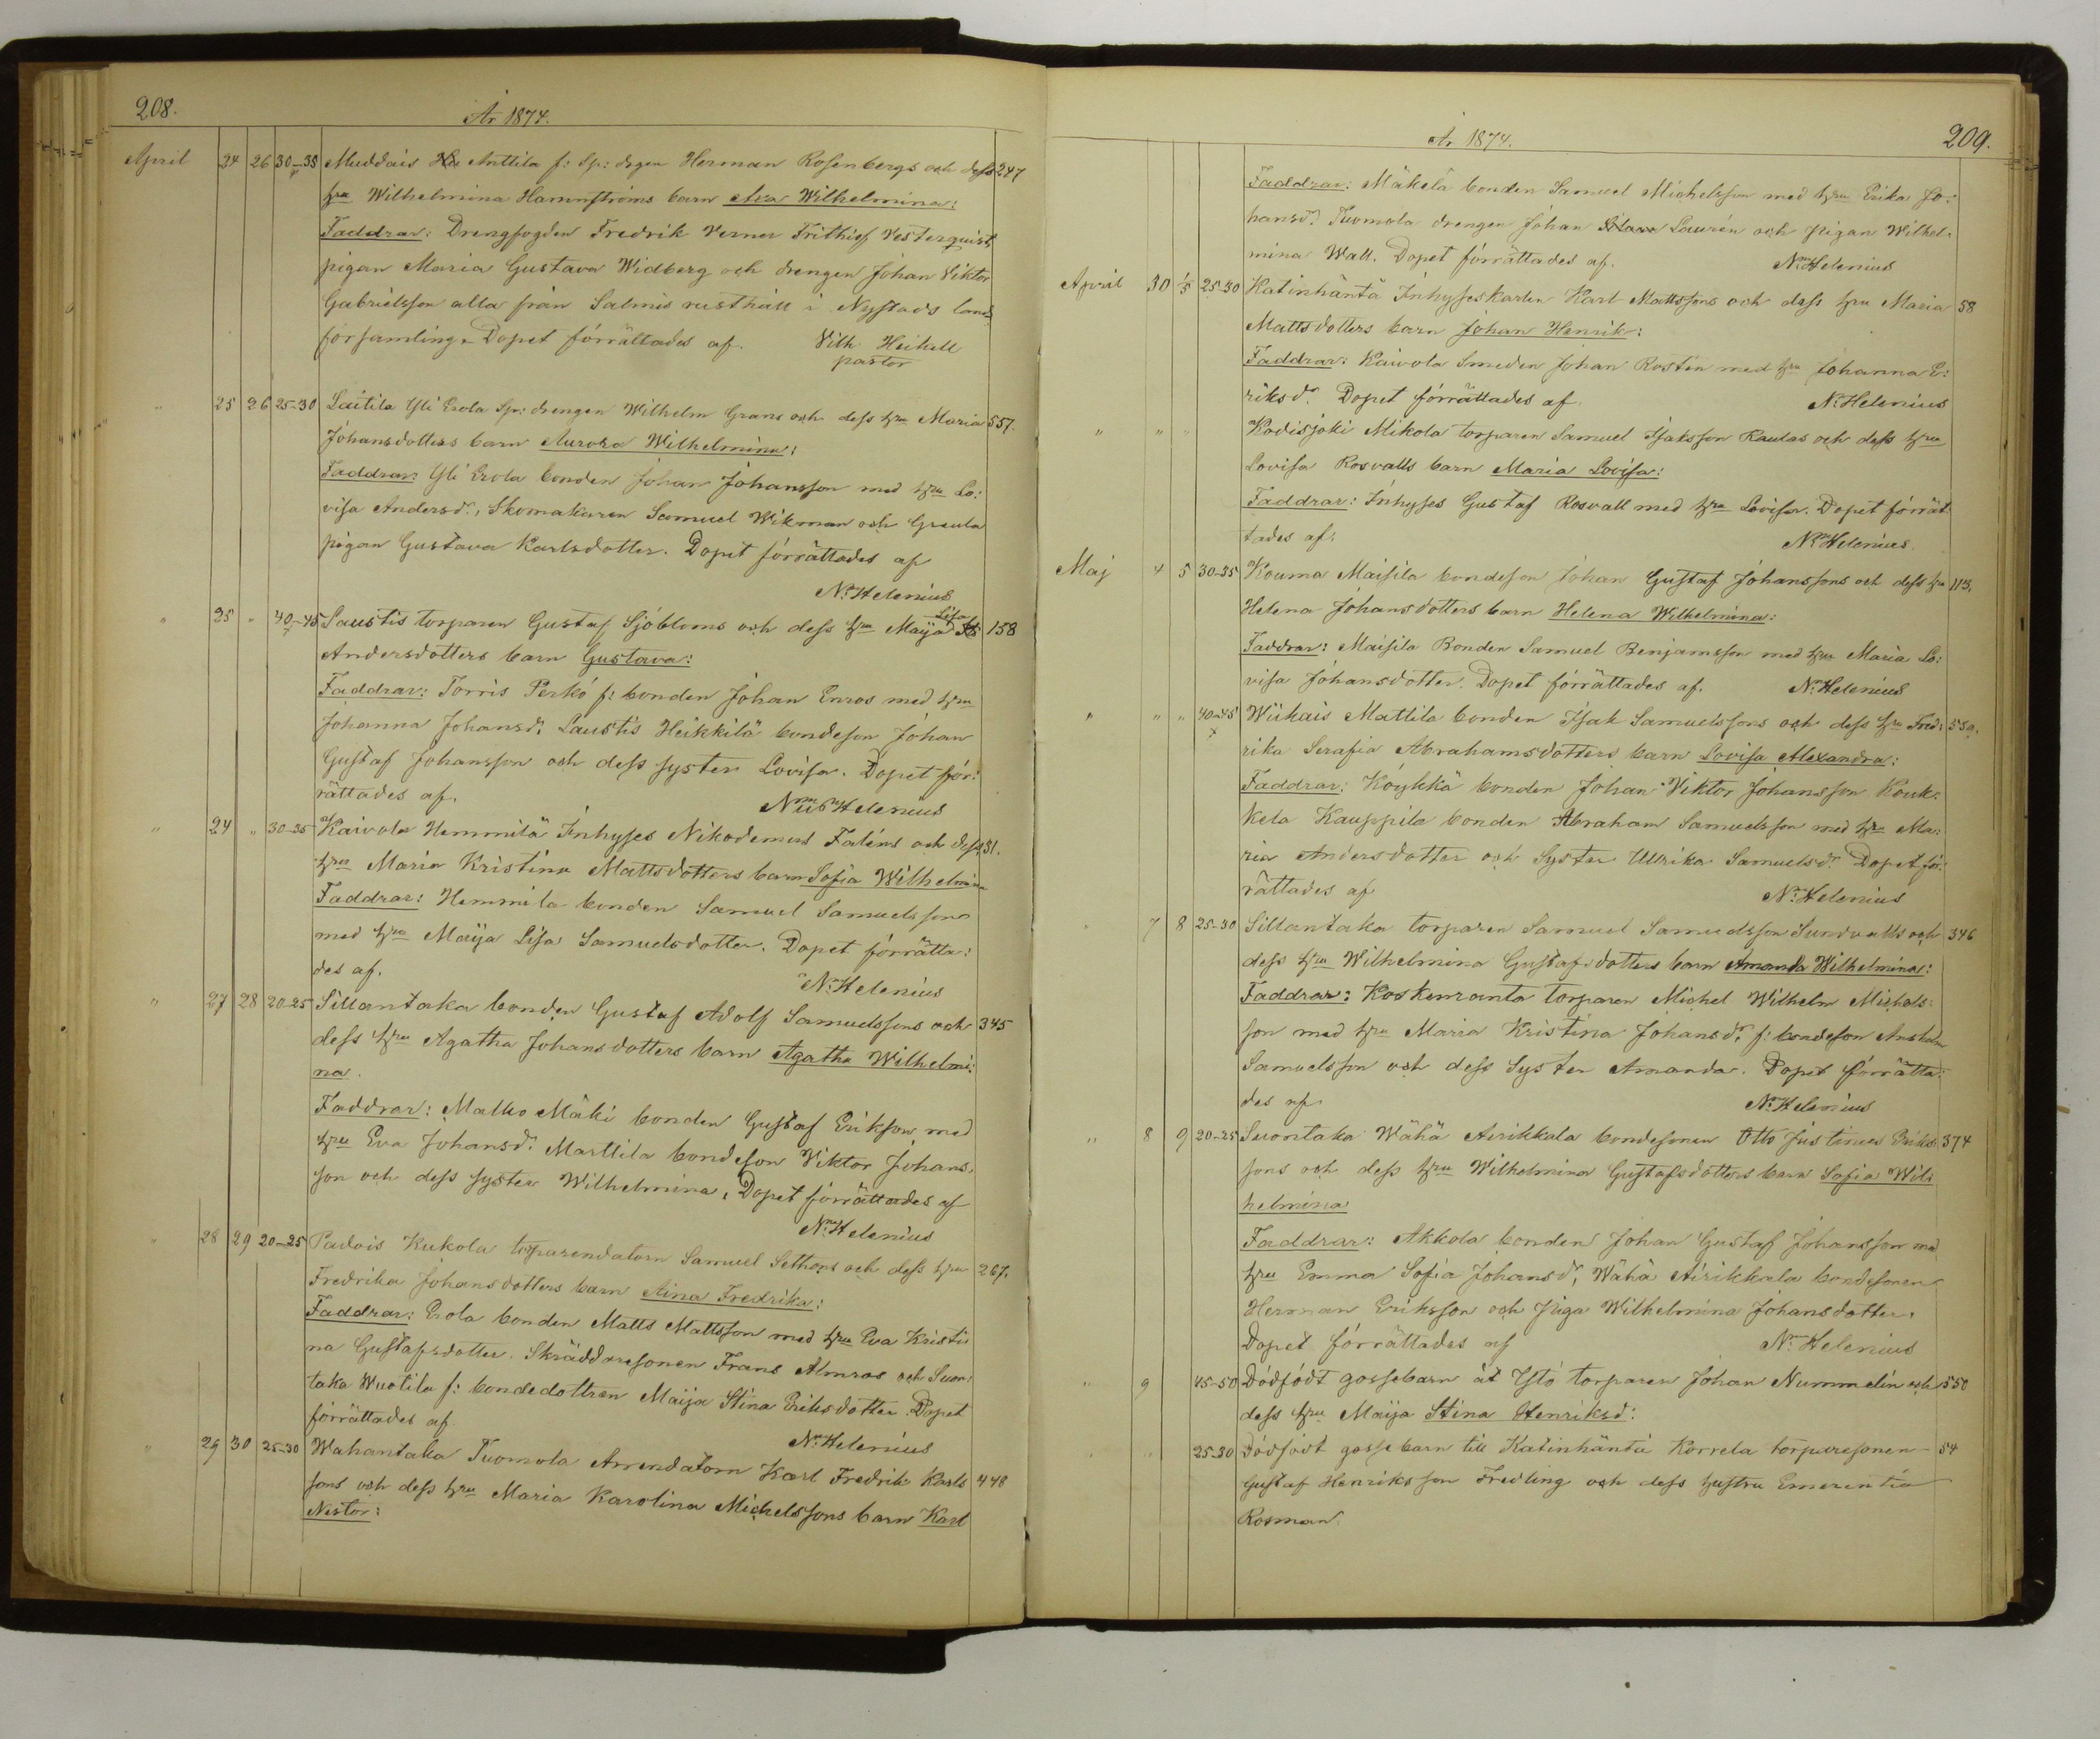 208.
År 1874.
April 24 26 30-35 Muddais Anttila f: Sp: drgen Herman Rosenbergs och dess 247
hru Wilhelmina Hammströms barn Eva Wilhelmina:
Faddrar: Drengfogden Fredrik Verner Frithiof Vesterquist,
pigan Maria Gustava Widberg och drengen Johan Viktor
Gabrielsson alla från Salmis rusthåll i Nystads lands
församling. Dopet förrättades af. Vilh. Heikell
pastor
" 25 26 25-30 Laitila Yli Erola Spr: drengen Wilhelm Grans och dess hru Maria 557.
Johansdotters barn Aurora Wilhelmina:
Faddrar: Yli Erola bonden Johan Johansson med hru Lo:
visa Andersdr, Skomakaren Samuel Wikman och Graula
pigan Gustava Karlsdotter. Dopet förrättades af
N. Helenius
" 25 " 40-45 Laustis torparen Gustaf Sjöbloms och dess hru Maija Lisa 158
Andersdotters barn Gustava:
Faddrar: Torris Perkö f: bonden Johan Enros med hru
Johanna Johansdr, Laustis Heikkilä bondeson Johan
Gustaf Johansson och dess syster Lovisa. Dopet för:
rättades af. Nils Helenius
" 24 " 30-35 Kaivola Hemmilä Inhyses Nikodemus Faléns och dess 31.
hru Maria Kristina Mattsdotters barn Sofia Wilhelmina
Faddrar: Hemmila bonden Samuel Samuelsson
med hru Maija Lisa Samuelsdotter. Dopet förrätta:
des af. N. Helenius
" 27 28 20-25 Sillantaka bonden Gustaf Adolf Samuelssons och 345
dess hru Agatha Johansdotters barn Agatha Wilhelmi:
na.
Faddrar: Matko Mäki bonden Gustaf Erikson med
hru Eva Johansdr Marttila bondeson Viktor Johans:
son och dess syster Wilhelmina, Dopet förrättades af
N. Helenius
" 28 29 20-25 Padois Kukola torparendatorn Samuel Sethons och dess hru 267.
Fredrika Johansdotters barn Aina Fredrika:
Faddrar: Erola bonden Matts Mattsson med hru Eva Kristi
na Gustafsdotter. Skräddaresonen Frans Almros och Suon:
taka Wuotila f: bondedottren Maija Stina Eriksdotter. Dopet
förrättades af. N. Helenius
" 29 30 25-30 Wahantaka Tuomola Arrendatorn Karl Fredrik Karls 448
sons och dess hru Maria Karolina Michelssons barn Karl
Nestor:
År 1874.
209.
Faddrar: Mäkelä bonden Samuel Michelsson med hru Erika Jo:
hansdr. Tuomola drengen Johan Laurén och pigan Wilhel:
mina Wall. Dopet förrättades af. N. Helenius
April 30 1/5 25-30 Katinhäntä Inhyseskarlen Karl Mattssons och dess hru Maria 58
Mattsdotters barn Johan Henrik:
Faddrar: Kaivola Smeden Johan Rostén med hru Johanna E:
riksdr. Dopet förrättades af. N. Helenius
" " " Kodisjoki Mikola torparen Samuel Isaksson Raulas och dess hru
Lovisa Rosvalls barn Maria Lovisa:
Faddrar: Inhyses Gustaf Rosvall med hru Lovisa. Dopet förrät
tades af: N. Helenius.
Maj 4 5 30-35 Kouma Maisila bondeson Johan Gustaf Johanssons och dess hru 113,
Helena Johansdotters barn Helena Wilhelmina:
Faddrar: Maisila Bonden Samuel Benjamsson med hru Maria Lo:
visa Johansdotter. Dopet förrättades af. N. Helenius
" " " 40-45 Wiikais Mattila bonden Isak Samuelssons och dess hru Fred: 559.
rika Serafia Abrahamsdotters barn Lovisa Alexandra:
Faddrar: Köykkä bonden Johan Viktor Johansson Kouk:
kela Kauppila bonden Abraham Samuelsson med hru Ma:
ria Andersdotter och Syster Ullrika Samuelsdr. Dopet för:
rättades af N. Helenius
" 7 8 25-30 Sillantaka torparen Samuel Samuelsson Sundvalls och 346
dess hru Wilhelmina Gustafsdotters barn Amanda Wilhelmina:
Faddrar: Koskenranta torparen Michel Wilhelm Michels:
son med hru Maria Kristina Johansdr, f: bondeson Anshelm
Samuelsson och dess Syster Amanda. Dopet förrätta:
des af. N. Helenius
" 8 9 20-25 Suontaka Wähä Airikkala bondesonen Otto Justinus Eriks: 374
sons och dess hru Wilhelmina Gustafsdotters barn Sofia Wil:
helmina
Faddrar: Akkola bonden Johan Gustaf Johansson med
hru Emma Sofia Johansdr, Wähä Airikkala bondesonen
Herman Eriksson och Piga Wilhelmina Johansdotter.
Dopet förrättades af N. Helenius
" 9 45-50 Dödfödt gossebarn åt Ystö torparen Johan Nummelin och 550
dess hru Maija Stina Henriksd:
25-30 Dödfödt gossebarn till Katinhäntä Korrela torparesonen 54
Gustaf Henriksson Fredling och dess hustru Emerentia
Rosman.